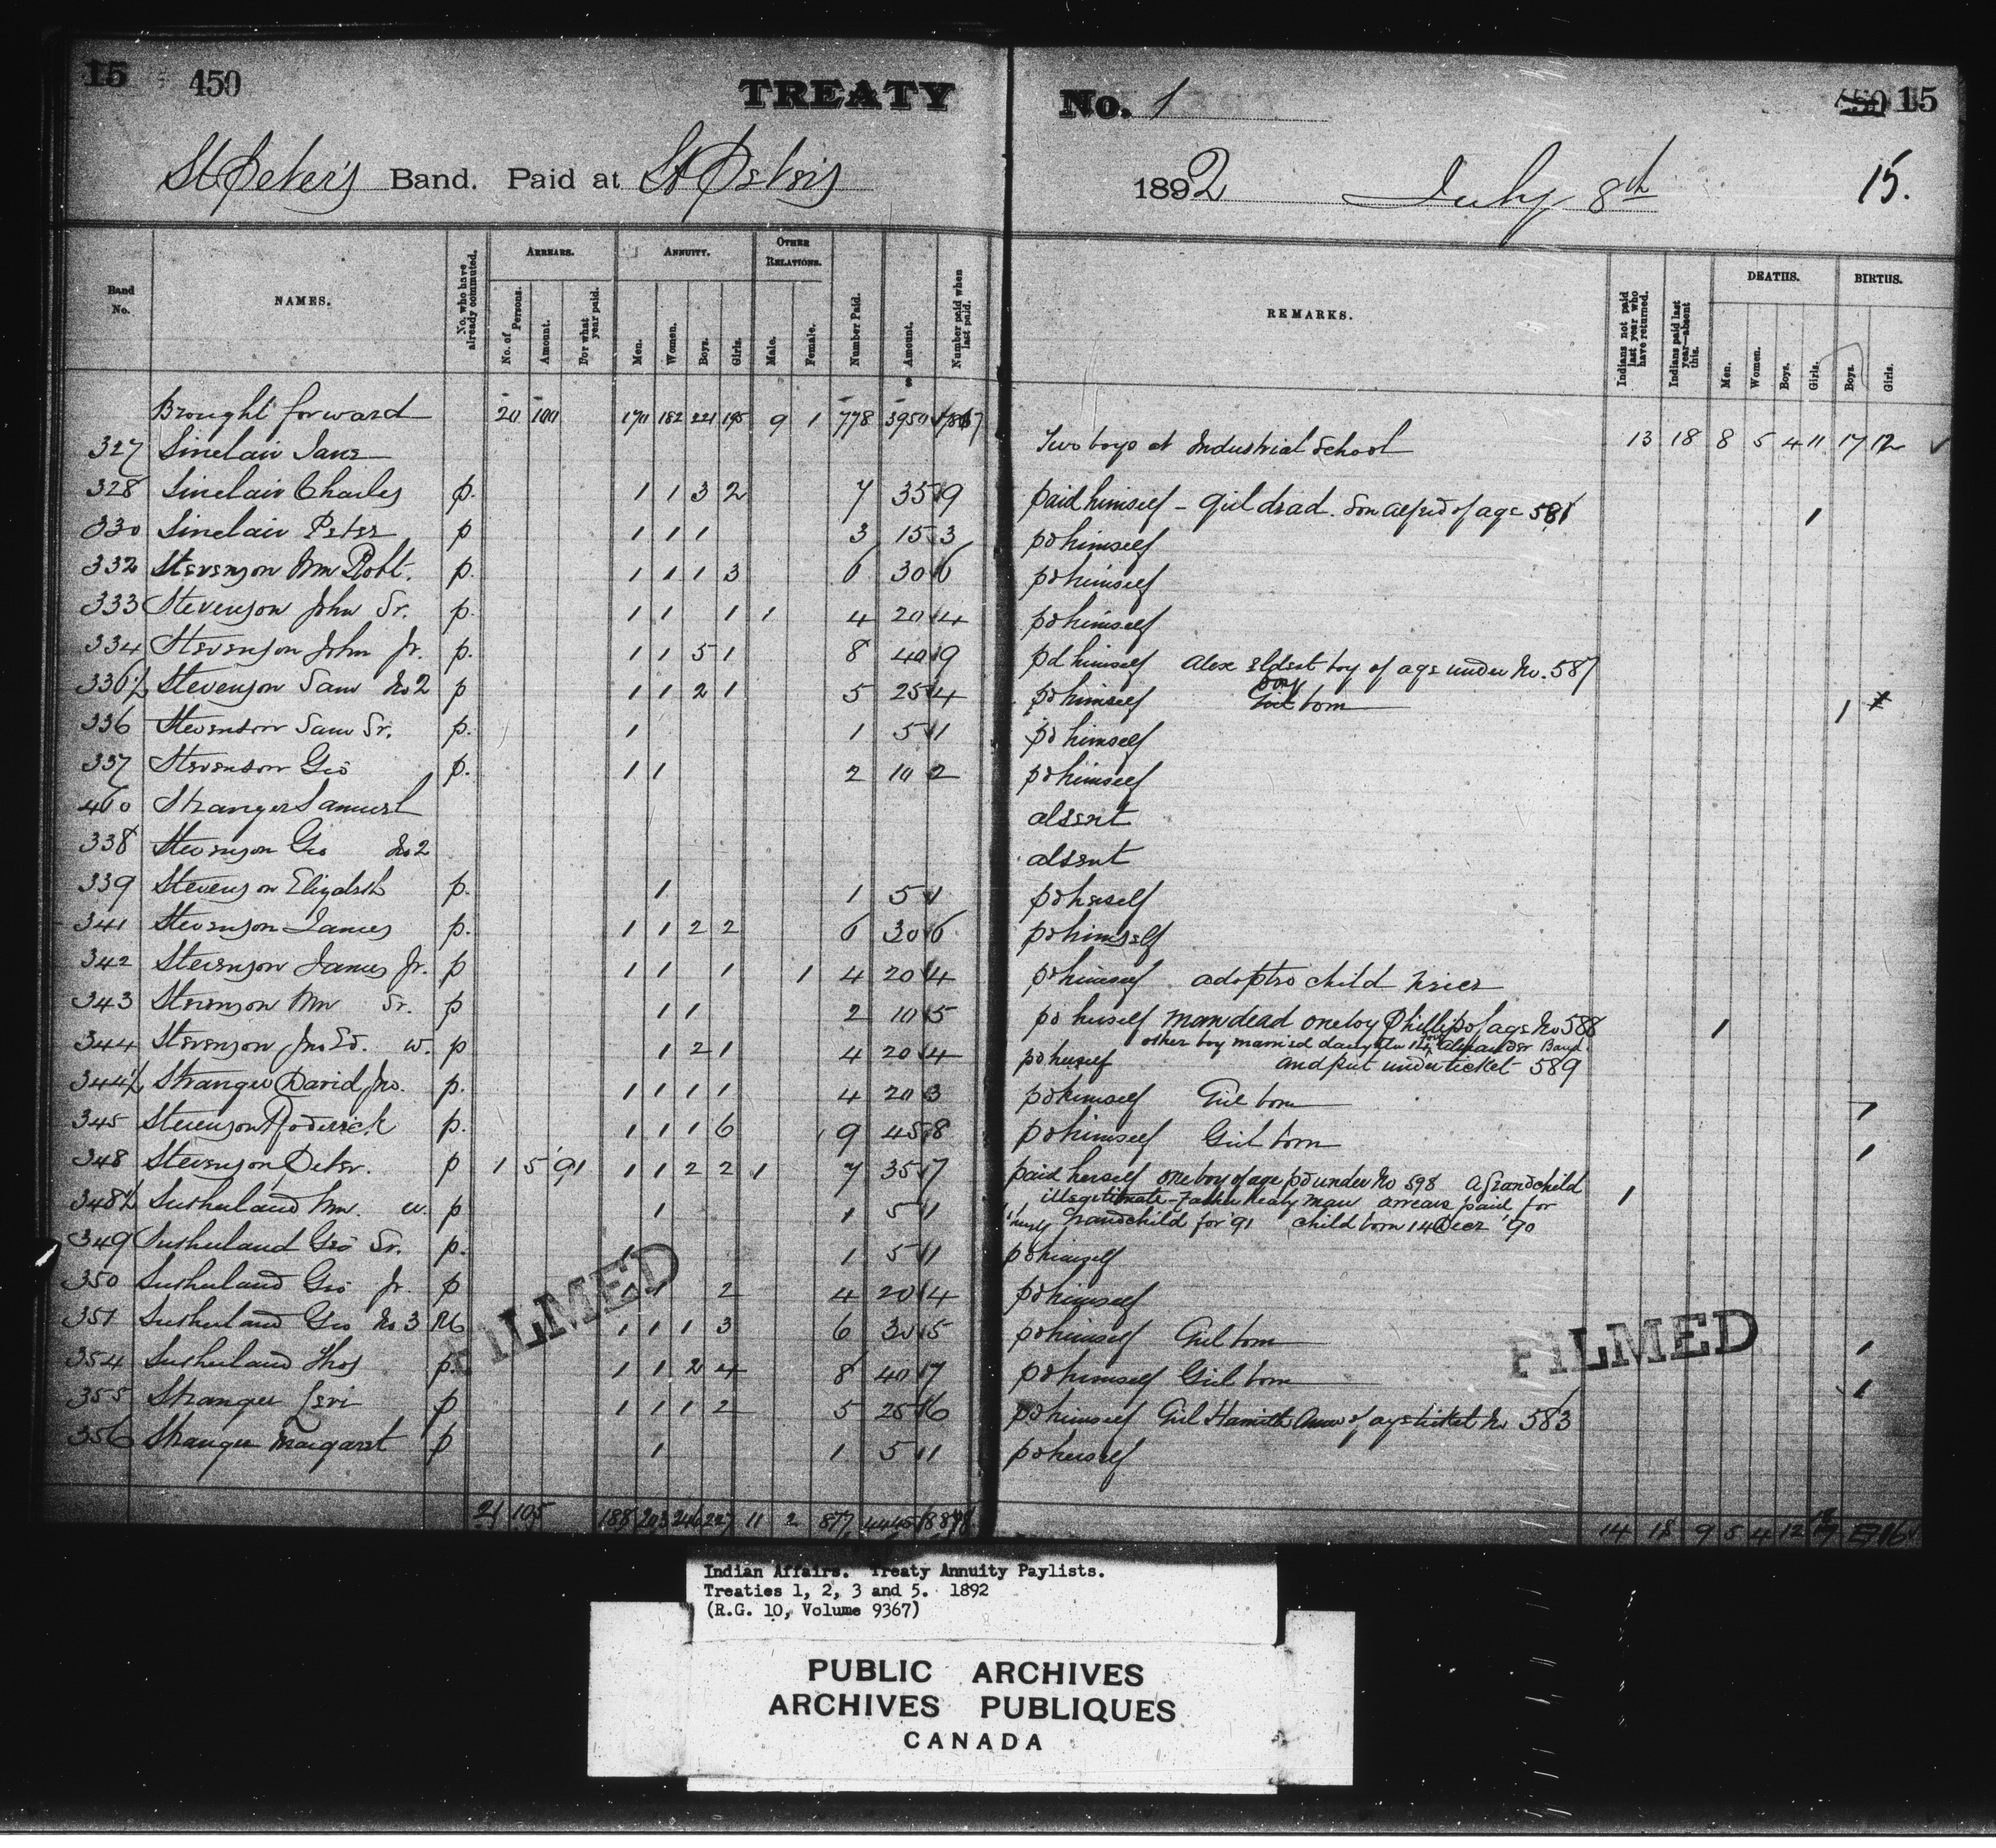 15 450 TREATY No. 1 450 15
St Peter's Band. Paid at St Peter's 1892 July 8th 15.
Band No. NAMES. No. who have already commuted. ARREARS. No. of Persons. Amount. For what year paid. ANNUITY. Men. Women. Boys. Girls. OTHER RELATIONS. Male. Female. Number Paid. Amount. Number paid when last paid. REMARKS. Indians not paid last year who have returned. Indians paid last year—absent this. DEATHS. Men. Women. Boys. Girls. BIRTHS. Boys. Girls.
Brought forward 20 100 170 182 221 195 9 1 778 3950 13 18 8 5 4 11 17 12
327 Sinclair Jane Two boys at Industrial School
328 Sinclair Charles p. 1 1 3 2 7 35 9 paid himself - Girl dead. Son Alfred of age 581 1
330 Sinclair Peter p 1 1 1 3 15 3 pd himself
332 Stevenson Wm Robt. p. 1 1 1 3 6 30 6 pd himself
333 Stevenson John Sr. p. 1 1 1 1 4 20 4 pd himself
334 Stevenson John Jr. p. 1 1 5 1 8 40 9 pd himself Alex eldest boy of age under No. 587
336½ Stevenson Sam No 2 p 1 1 2 1 5 25 4 pd himself Girl boy born 1
336 Stevenson Sam Sr. p. 1 1 5 1 pd himself
337 Stevenson Geo p. 1 1 2 10 2 pd himself
460 Stranger Samuel absent
338 Stevenson Geo No 2 absent
339 Stevenson Elizabeth p. 1 1 5 1 pd herself
341 Stevenson James p. 1 1 2 2 6 30 6 pd himself
342 Stevenson James Jr. p 1 1 1 1 4 20 4 pd himself adopted child niece
343 Stevenson Wm Sr. p 1 1 2 10 5 pd herself man dead one boy Phillip of age No 588 1
other boy married daughter 14 Alexander Band
344 Stevenson Jno Ed. w. p 1 2 1 4 20 4 pd herself and put under ticket 589
344½ Stranger David Jno. p. 1 1 1 1 4 20 3 pd himself Girl born 1
345 Stevenson Roderick p. 1 1 1 6 9 45 8 pd himself Girl born 1
348 Stevenson Peter. p 1 5 91 1 1 2 2 1 7 35 7 paid herself one boy of age pd under No 598 a Grandchild
illegitimate - Father Healy man arrears paid for 1
348½ Sutherland Wm. w. p 1 1 5 1 herself Grandchild for '91 child born 14 Decr '90
349 Sutherland Geo Sr. p. 1 1 5 1 pd himself
350 Sutherland Geo Jr. p 1 1 2 4 20 4 pd himself
351 Sutherland Geo No 3 1 1 1 3 6 30 5 pd himself Girl born 1
354 Sutherland Thos p. 1 1 2 4 8 40 7 pd himself Girl born 1
355 Stranger Levi p 1 1 1 2 5 25 6 pd himself Girl Ann of age ticket No 583
356 Stranger Margaret p 1 1 5 1 pd herself
21 105 188 203 246 227 11 2 877 4445 14 18 9 5 4 12 18 16
FILMED
FILMED
Indian Affairs. Treaty Annuity Paylists.
Treaties 1, 2, 3 and 5. 1892
(R.G. 10, Volume 9367)
PUBLIC ARCHIVES
ARCHIVES PUBLIQUES
CANADA